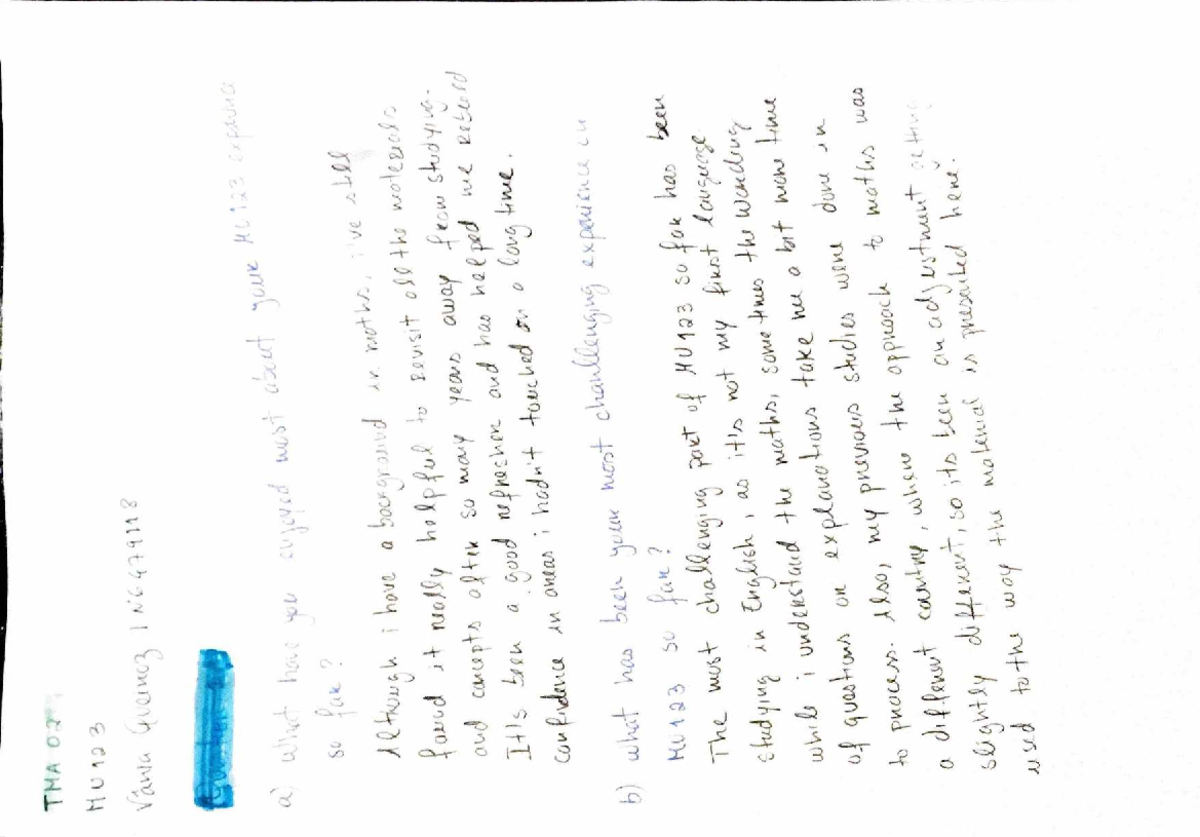 TMA 02
MU123
Vânia Queiroz | N6479118
Question 1
a) what have you enjoyed most about your MU123 experience
so far?
Although i have a background in maths, i've still
found it really helpful to revisit all the materials
and concepts after so many years away from studying.
It's been a good refresher and has helped me rebuild
confidence in areas i hadn't touched on a long time.
b) what has been your most chanllenging experience in
MU123 so far?
The most challenging part of MU123 so far has been
studying in English, as it's not my first language
while i understand the maths, some times the wording
of questions or explanations take me a bit more time
to process. Also, my previous studies were done in
a different country, where the approach to maths was
slightly different, so its been an adjustment getting
used to the way the material is presented here.